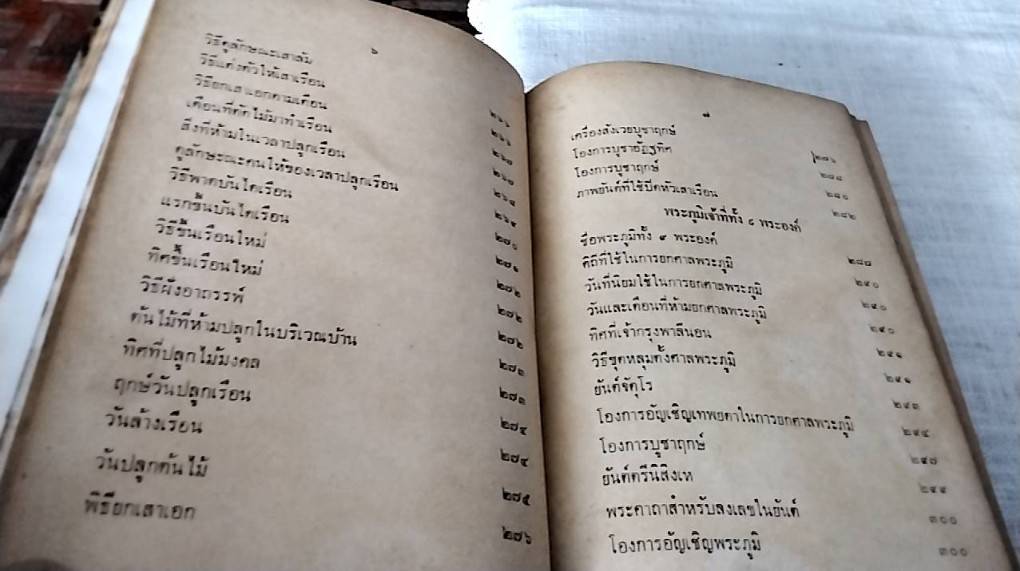 ๖
วิธีดูลักษณะเสาล้ม
วิธีแต่งตัวให้เสาเรือน
วิธียกเสาเอกตามเดือน ๒๖๖
เดือนที่ตัดไม้มาทำเรือน ๒๖๖
สิ่งที่ห้ามในเวลาปลูกเรือน ๒๖๘
ดูลักษะณะคนให้ของเวลาปลูกเรือน
วิธีพาดบันไดเรือน ๒๖๘
แรกขึ้นบันไดเรือน ๒๖๙
วิธีขึ้นเรือนใหม่ ๒๗๐
ทิศขึ้นเรือนใหม่ ๒๗๑
วิธีฝังอาถรรพ์ ๒๗๒
ต้นไม้ที่ห้ามปลูกในบริเวณบ้าน ๒๗๒
ทิศที่ปลูกไม้มงคล ๒๗๒
ฤกษ์วันปลูกเรือน ๒๗๓
วันล้างเรือน ๒๗๓
วันปลูกต้นไม้ ๒๗๔
พิธียกเสาเอก ๒๗๔
๒๗๕
๒๗๖
๗
เครื่องสังเวยบูชาฤกษ์
โองการบูชาอัฏฐทิศ ๒๗๖
โองการบูชาฤกษ์ ๒๗๘
ภาพยันต์ที่ใช้ปิดหัวเสาเรือน ๒๘๐
พระภูมิเจ้าที่ทั้ง ๙ พระองค์ ๒๘๒
ชื่อพระภูมิทั้ง ๙ พระองค์
ดิถีที่ใช้ในการยกศาลพระภูมิ ๒๘๗
วันที่นิยมใช้ในการยกศาลพระภูมิ ๒๙๐
วันและเดือนที่ห้ามยกศาลพระภูมิ ๒๙๐
ทิศที่เจ้ากรุงพาลีนอน ๒๙๐
วิธีขุดหลุมตั้งศาลพระภูมิ ๒๙๑
ยันต์จัตุโร ๒๙๑
โองการอัญเชิญเทพยดาในการยกศาลพระภูมิ ๒๙๓
โองการบูชาฤกษ์ ๒๙๔
ยันต์ตรีนิสิงเห ๒๙๗
พระคาถาสำหรับลงเลขในยันต์ ๒๙๙
โองการอัญเชิญพระภูมิ ๓๐๐
๓๐๐